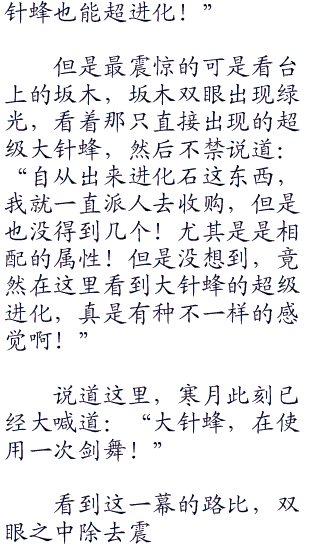 针蜂也能超进化！”
但是最震惊的可是看台
上的坂木，坂木双眼出现绿
光，看着那只直接出现的超
级大针蜂，然后不禁说道：
“自从出来进化石这东西，
我就一直派人去收购，但是
也没得到几个！尤其是是相
配的属性！但是没想到，竟
然在这里看到大针蜂的超级
进化，真是有种不一样的感
觉啊！”
说道这里，寒月此刻已
经大喊道：“大针蜂，在使
用一次剑舞！”
看到这一幕的路比，双
眼之中除去震